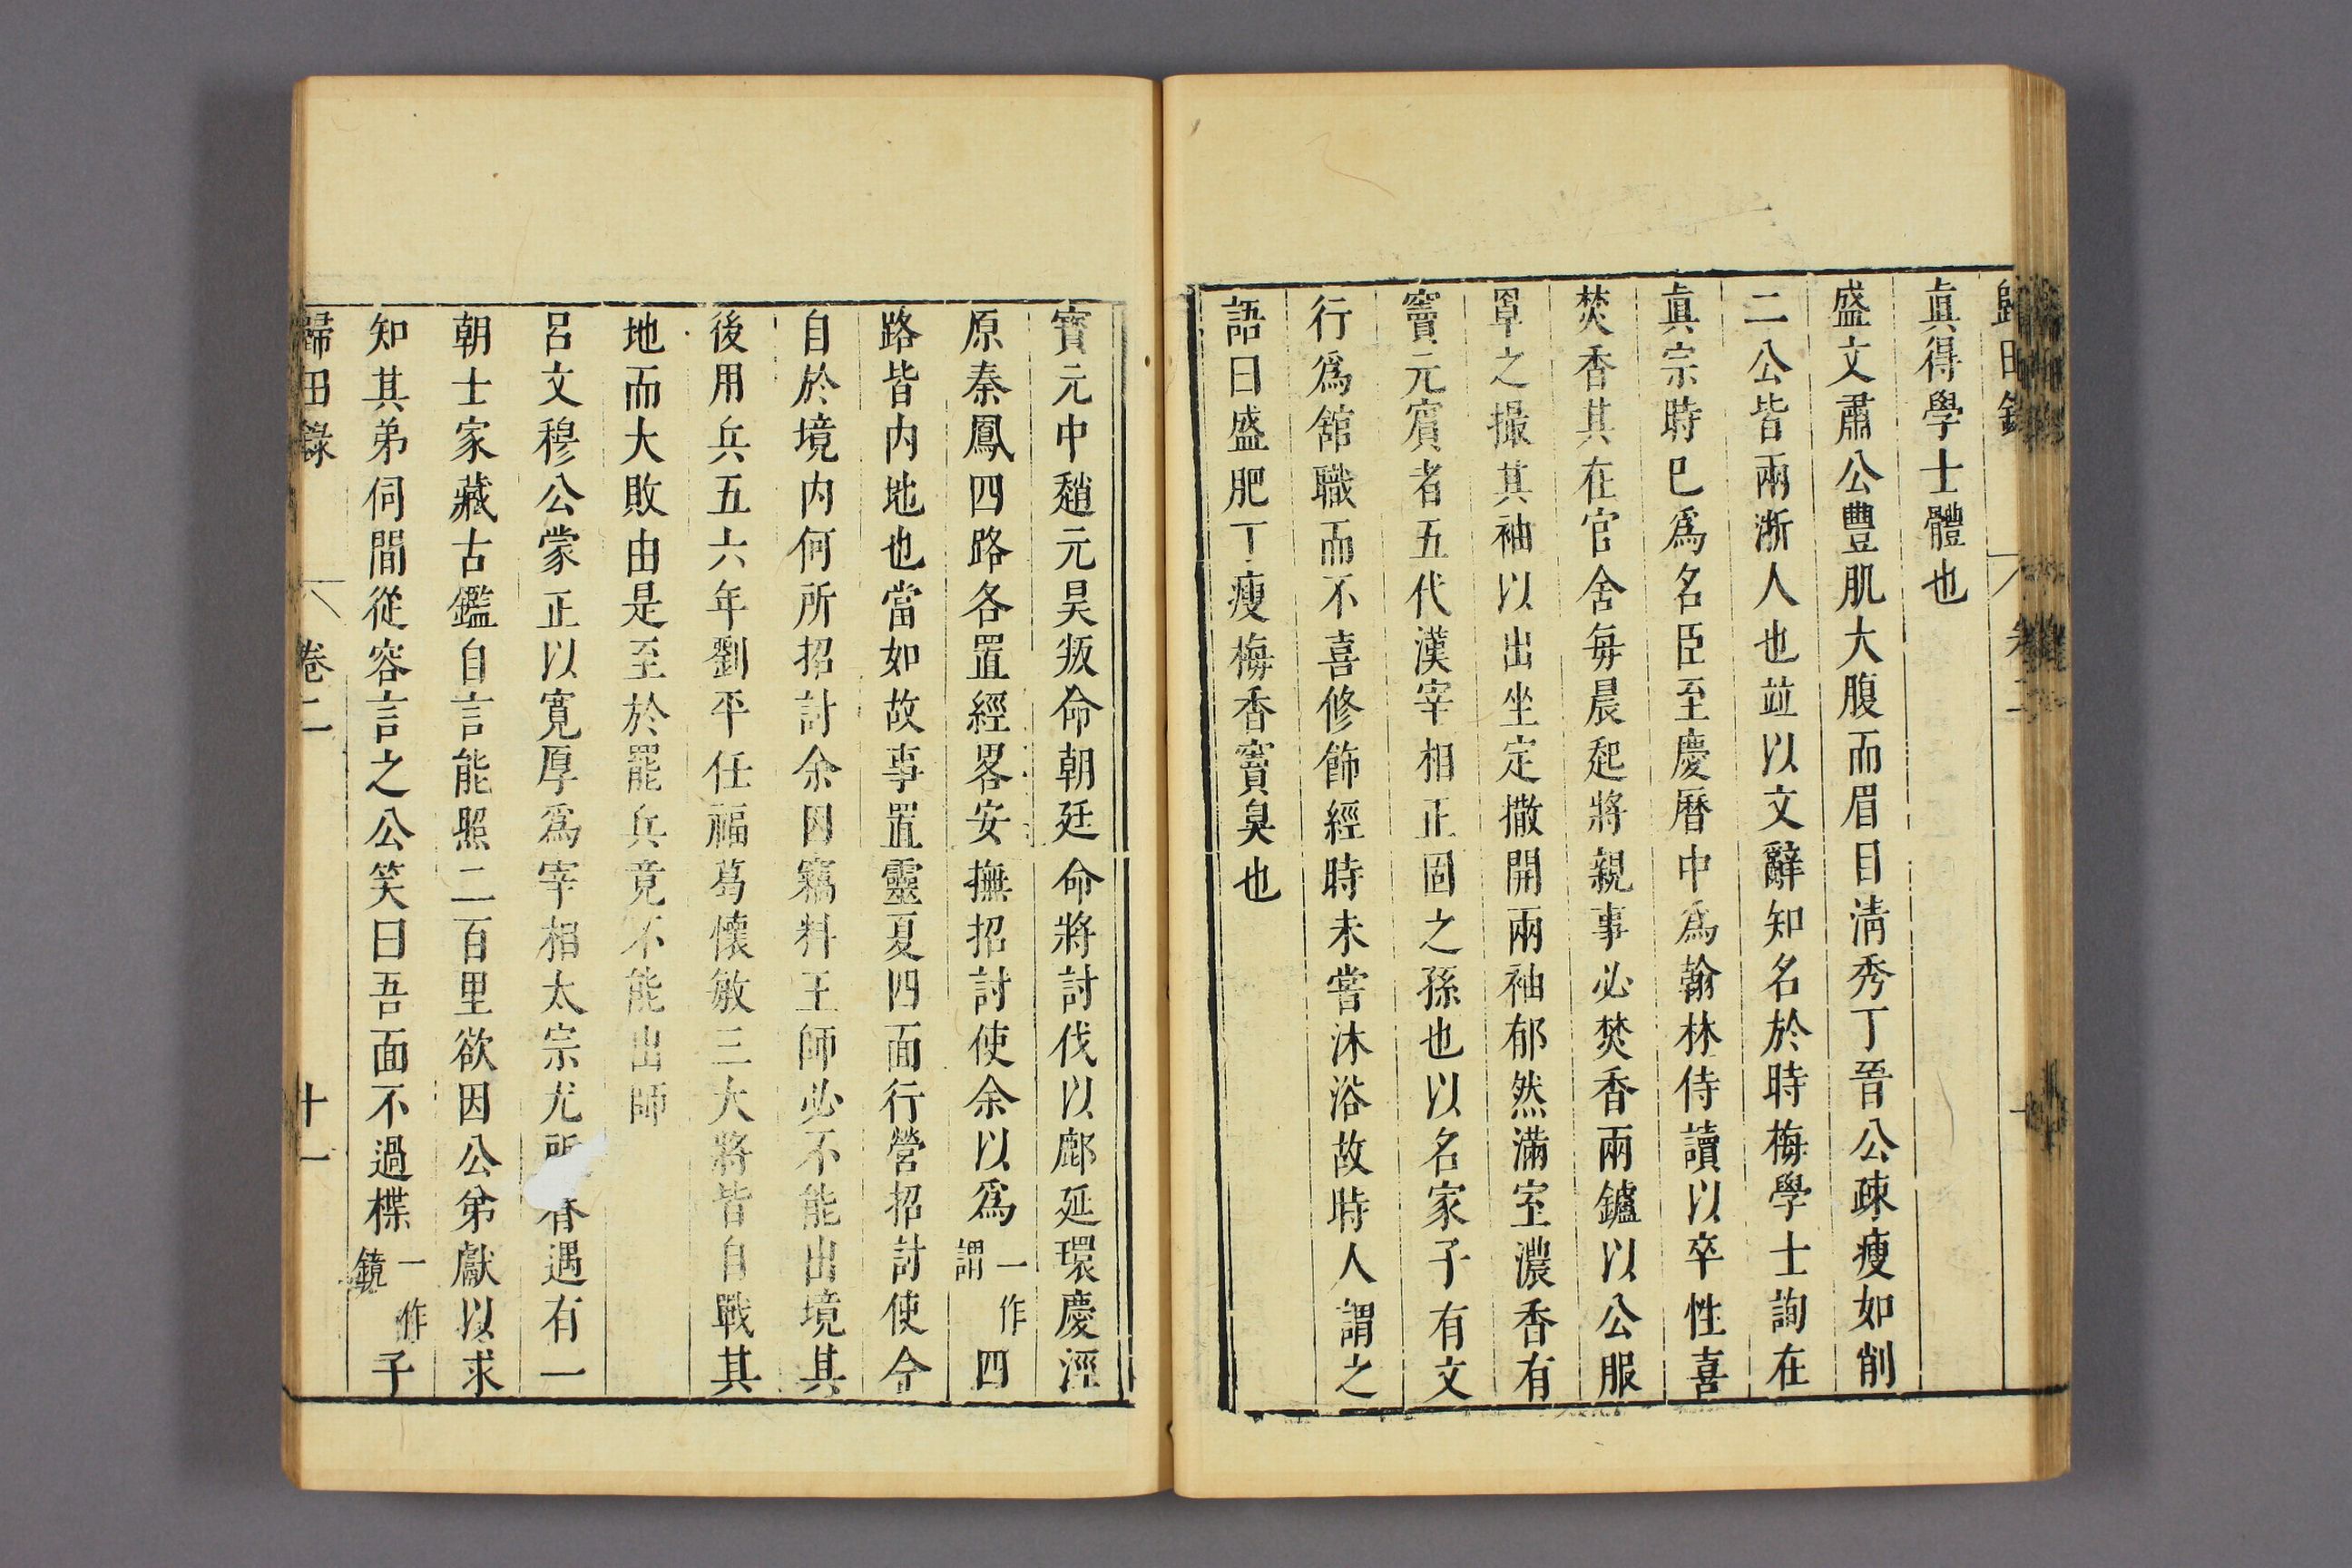 眞得學士體也
盛文肅公豐肌大腹而眉目清秀丁晉公疎瘦如削
二公皆兩浙人也並以文辭知名於時梅學士詢在
眞宗時已爲名臣至慶曆中爲翰林侍讀以卒性喜
焚香其在官舍每晨起將親事必焚香兩鑪以公服
罩之撮其袖以出坐定撒開兩袖郁然滿室濃香有
竇元賓者五代漢宰相正固之孫也以名家子有文
行爲舘職而不喜修飾經時未嘗沐浴故時人謂之
語曰盛肥丁瘦梅香竇臭也
寶元中趙元昊叛命朝廷命將討伐以鄜延環慶涇
原秦鳳四路各置經畧安撫招討使余以爲一作謂四
路皆內地也當如故事置靈夏四面行營招討使今
自於境內何所招討余因竊料王師必不能出境其
後用兵五六年劉平任福葛懷敏三大將皆自戰其
地而大敗由是至於罷兵竟不能出師
呂文穆公蒙正以寬厚爲宰相太宗尤所眷遇有一
朝士家藏古鑑自言能照二百里欲因公弟獻以求
知其弟伺間從容言之公笑曰吾面不過楪一作鏡子
歸田錄 卷二 十一